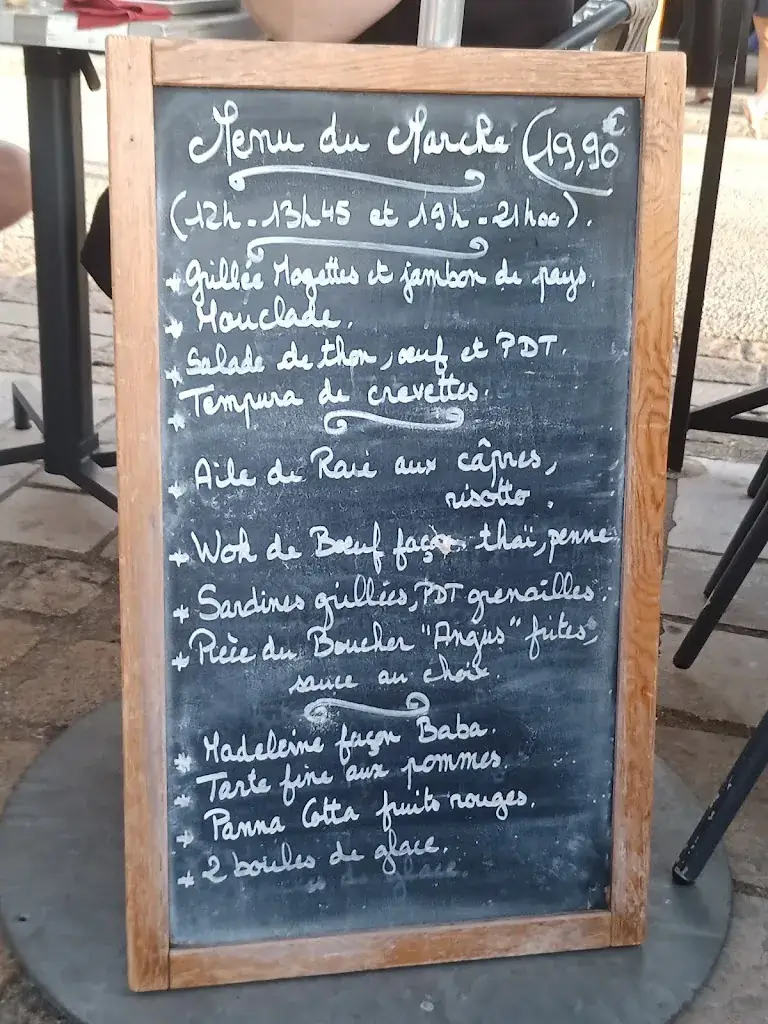 Menu du Marche (19,90€
(12h - 13h45 et 19h - 21h00).
* Grillée Mogettes et jambon de pays.
* Mouclade.
* Salade de thon, œuf et PDT.
* Tempura de crevettes.
* Aile de Raie aux câpres,
risotto.
* Wok de Bœuf façon thaï, penne
* Sardines grillées, PDT grenailles.
* Pièce du Boucher "Angus" frites,
sauce au choix.
* Madeleine façon Baba.
* Tarte fine aux pommes.
* Panna Cotta fruits rouges.
* 2 boules de glace.